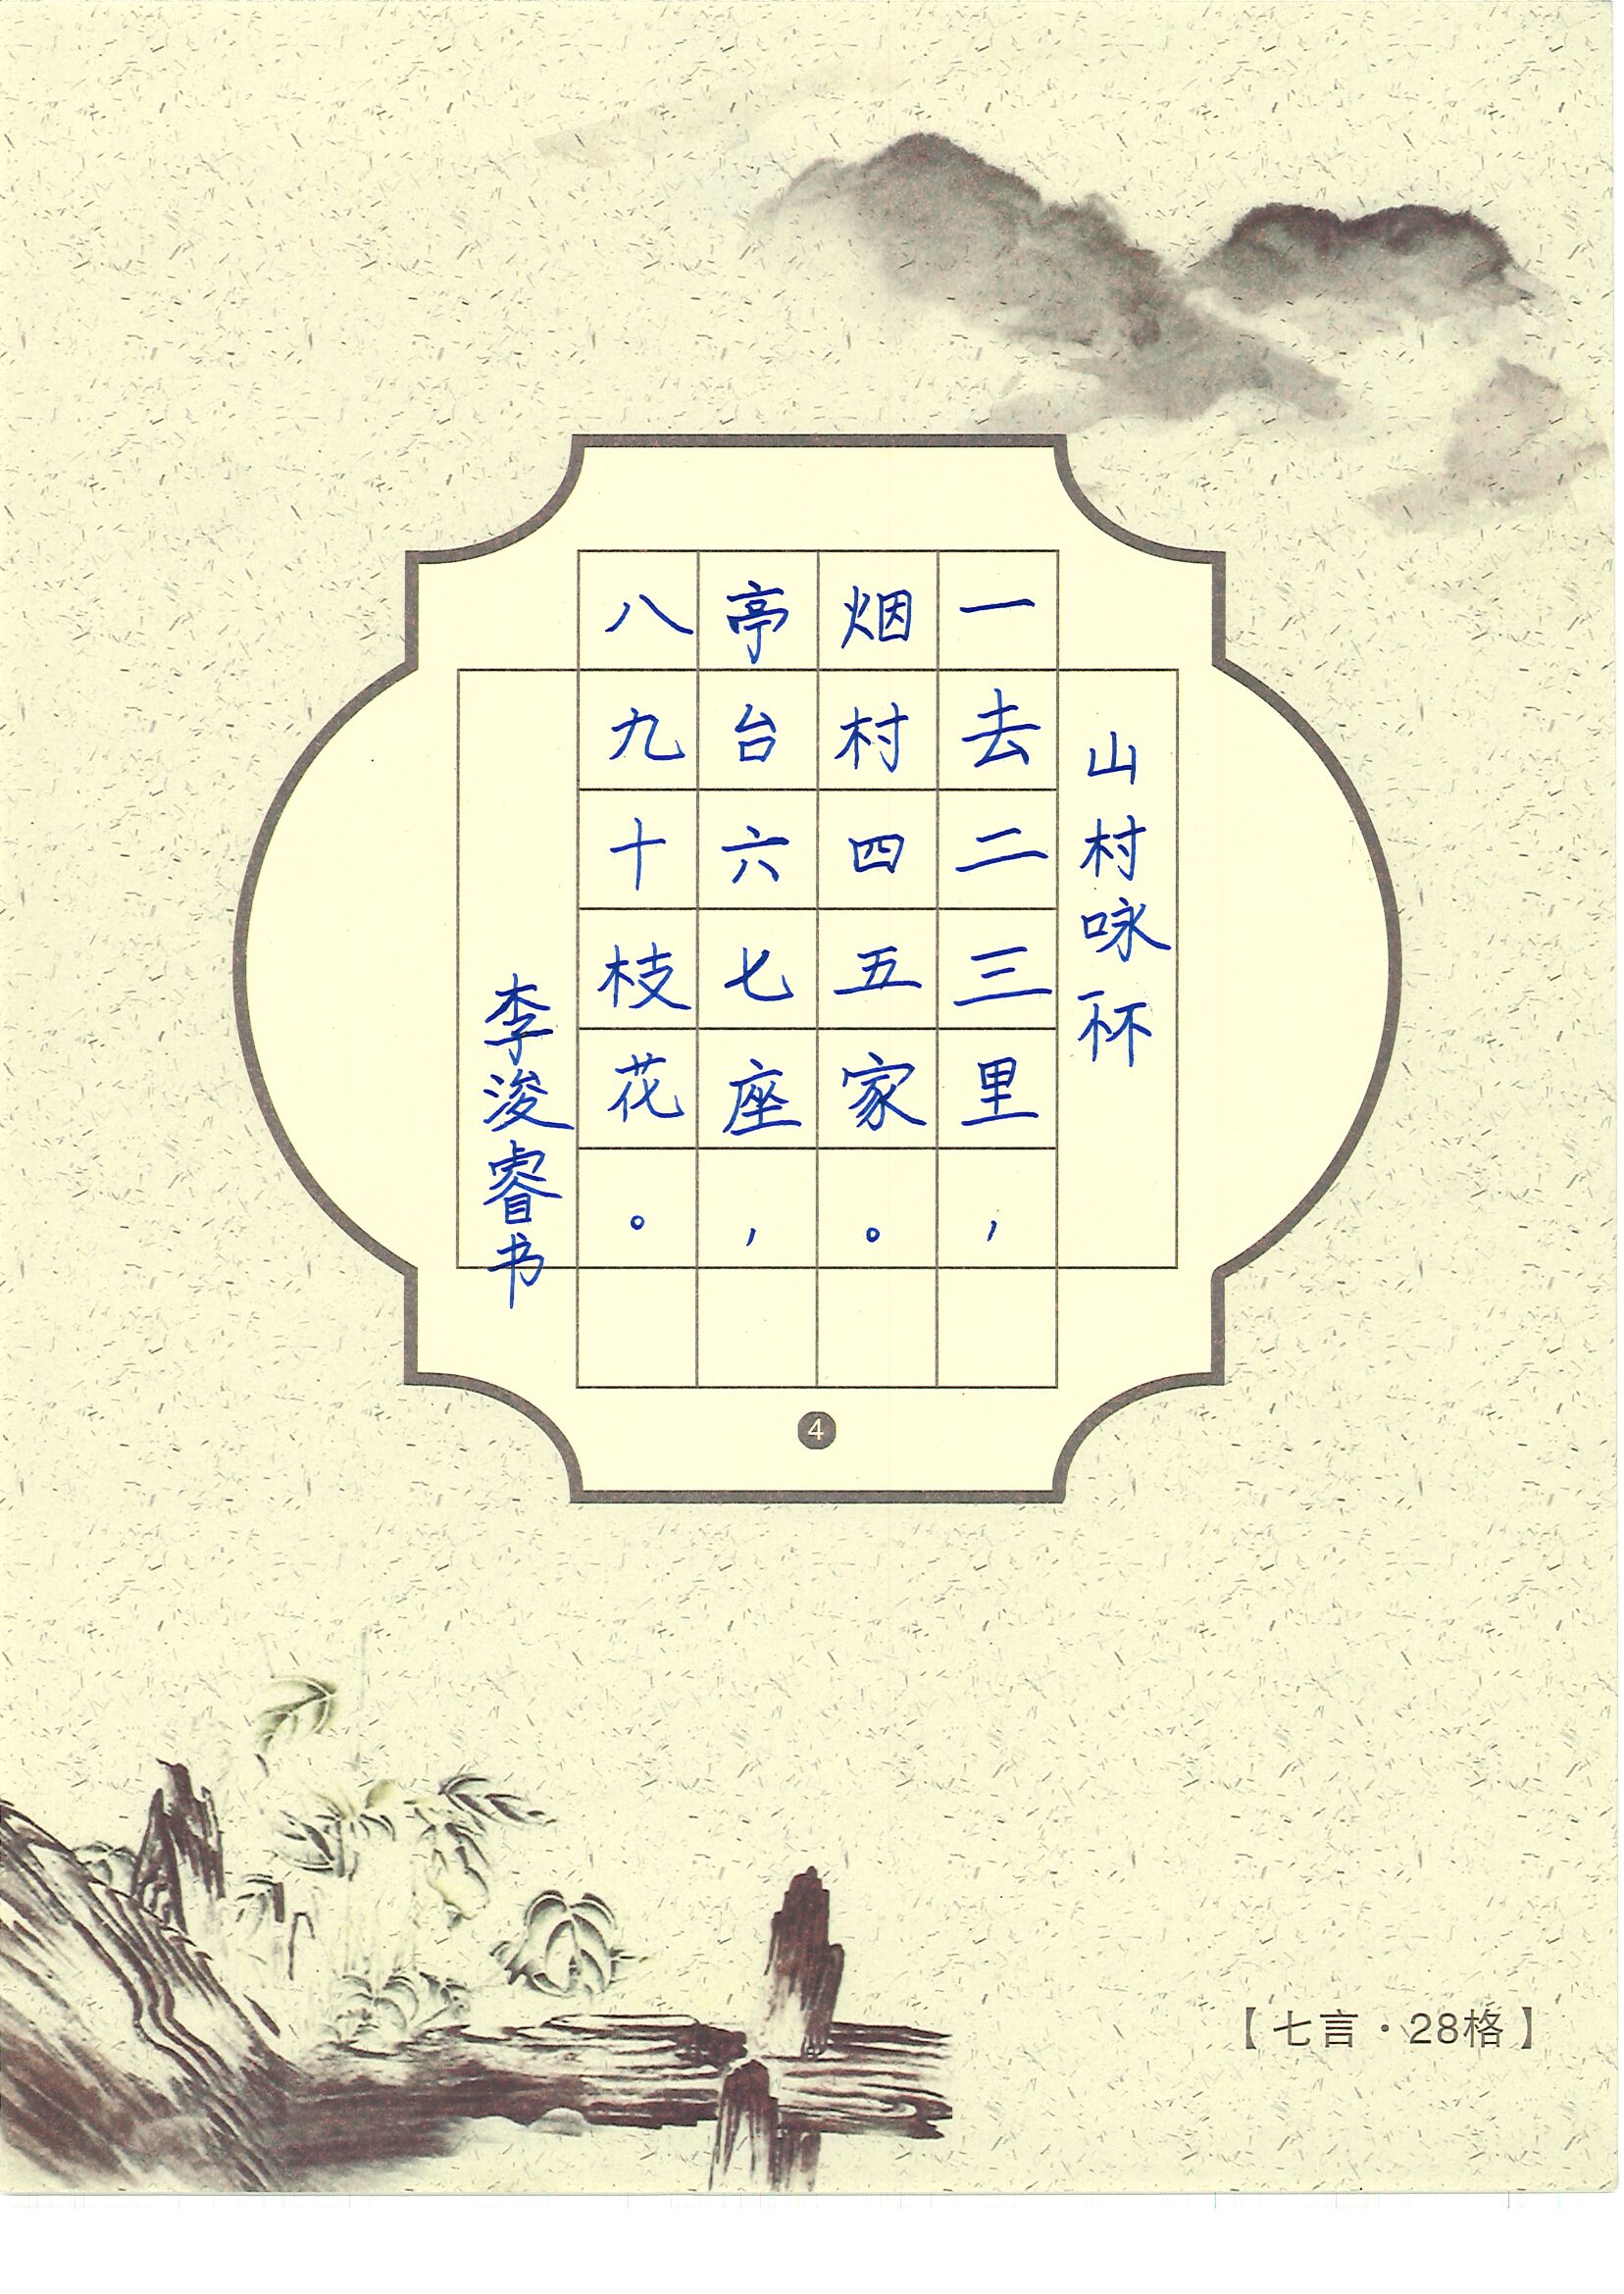 山村咏杯
一去二三里，
烟村四五家。
亭台六七座，
八九十枝花。
李浚睿书
4
【七言·28格】